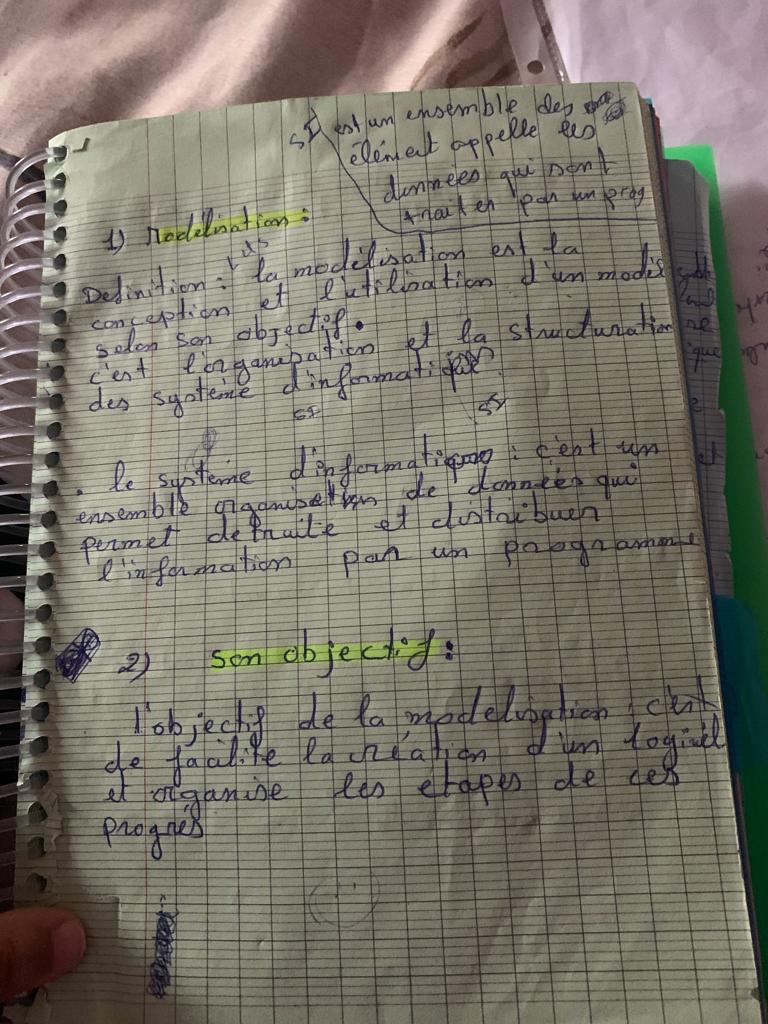 SI est un ensemble des
élément appelle les
données qui sont
traiter par un prog
1) Modelisation :
Definition : la modélisation est la
conception et l'utilisation d'un modèle
selon son objectif.
c'est l'organisation et la structuration
des système d'informatique
SI
SI
. le système d'informatique : c'est un
ensemble organisation de données qui
permet de traite et distribuer
l'information par un programme
2) son objectif :
l'objectif de la modelisation c'est
de facilite la création d'un logiciel
et organise les etapes de ces
progrés